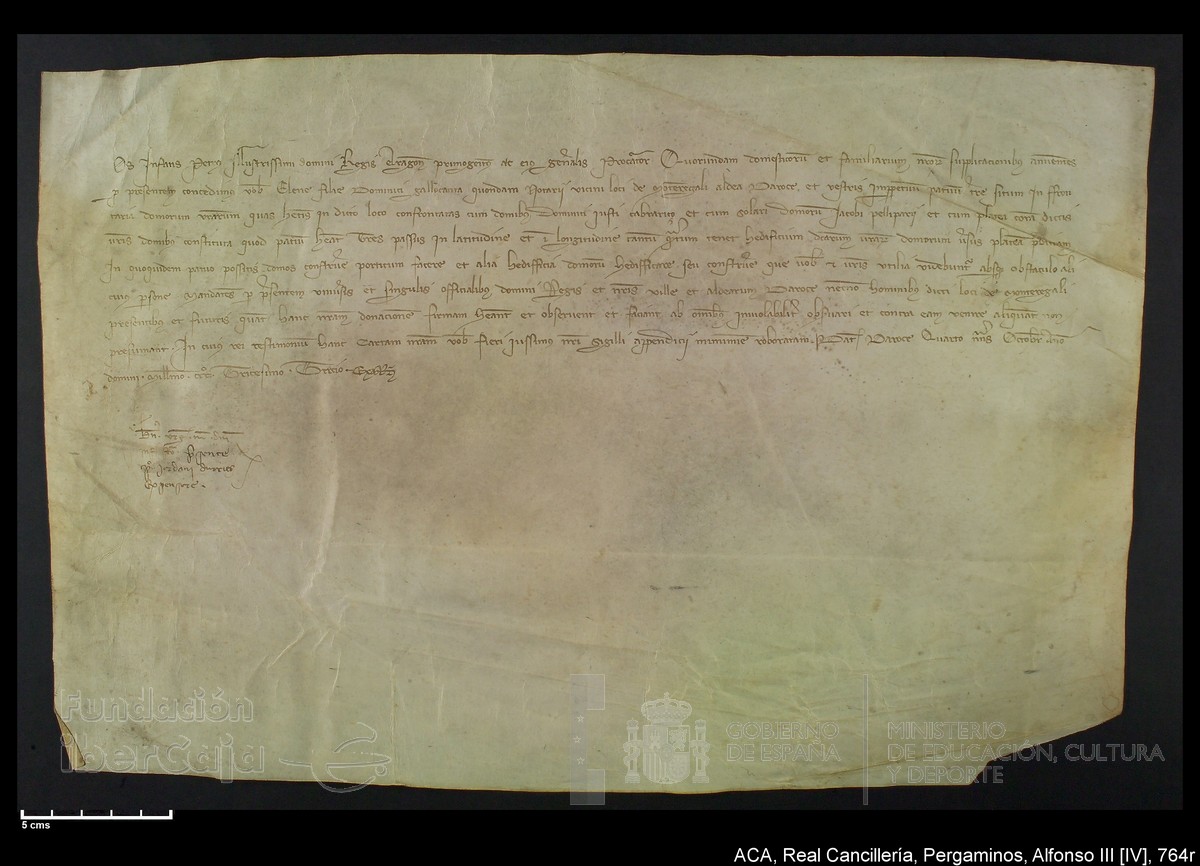 Nos Infans Petrus Illustrissimi domini Regis Aragon primogenitus ac eius generalis Procurator Quorundam domesticorum et familiarium nostrorum supplicacionibus annuentes
p presentem concedimus vob Elene filie Dominici gallocanta quondam Notarii vicini loci de Monteregali aldea Daroce et vestris Imperpetuum patuum
taria domorum vrarum quas hetis in dicto loco confrontatas cum domibus Dominici et cum solari domorum Jacobi pelliparii et cum platea coram dictis
vris domibus constituta quod patuum heat Tres passus in latitudine et in longitudine tantum tenet hedificium dictarum vrarum domorum versus plateam
In quoquidem patuo possitis domos construere porticum facere et alia hedifficia domorum hedifficare seu construere que vob et vris utilia videbuntur absque obstaculo ali
cuius psone Mandantes p presentem universis et singulis officialibus domini Regis et nris ville et aldearum Daroce necnon hominibus dicti loci de Monteregali
presentibus et futuris quatenus hanc nram donacionem firmam heant et observent et faciant ab omibus inviolabiliter observari et contra eam venire aliquatenus non
presumant. In cuius rei testimonium hanc Cartam nram vob fieri iussimus nri sigilli appendicii munimine roboratam. Dat Daroce Quarto nonas Octobr anno
domini Millesimo Tricesimo Tercio
presente
expensore
Fundación
iberCaja
GOBIERNO
DE ESPAÑA
MINISTERIO
DE EDUCACIÓN, CULTURA
Y DEPORTE
5 cms
ACA, Real Cancillería, Pergaminos, Alfonso III [IV], 764r